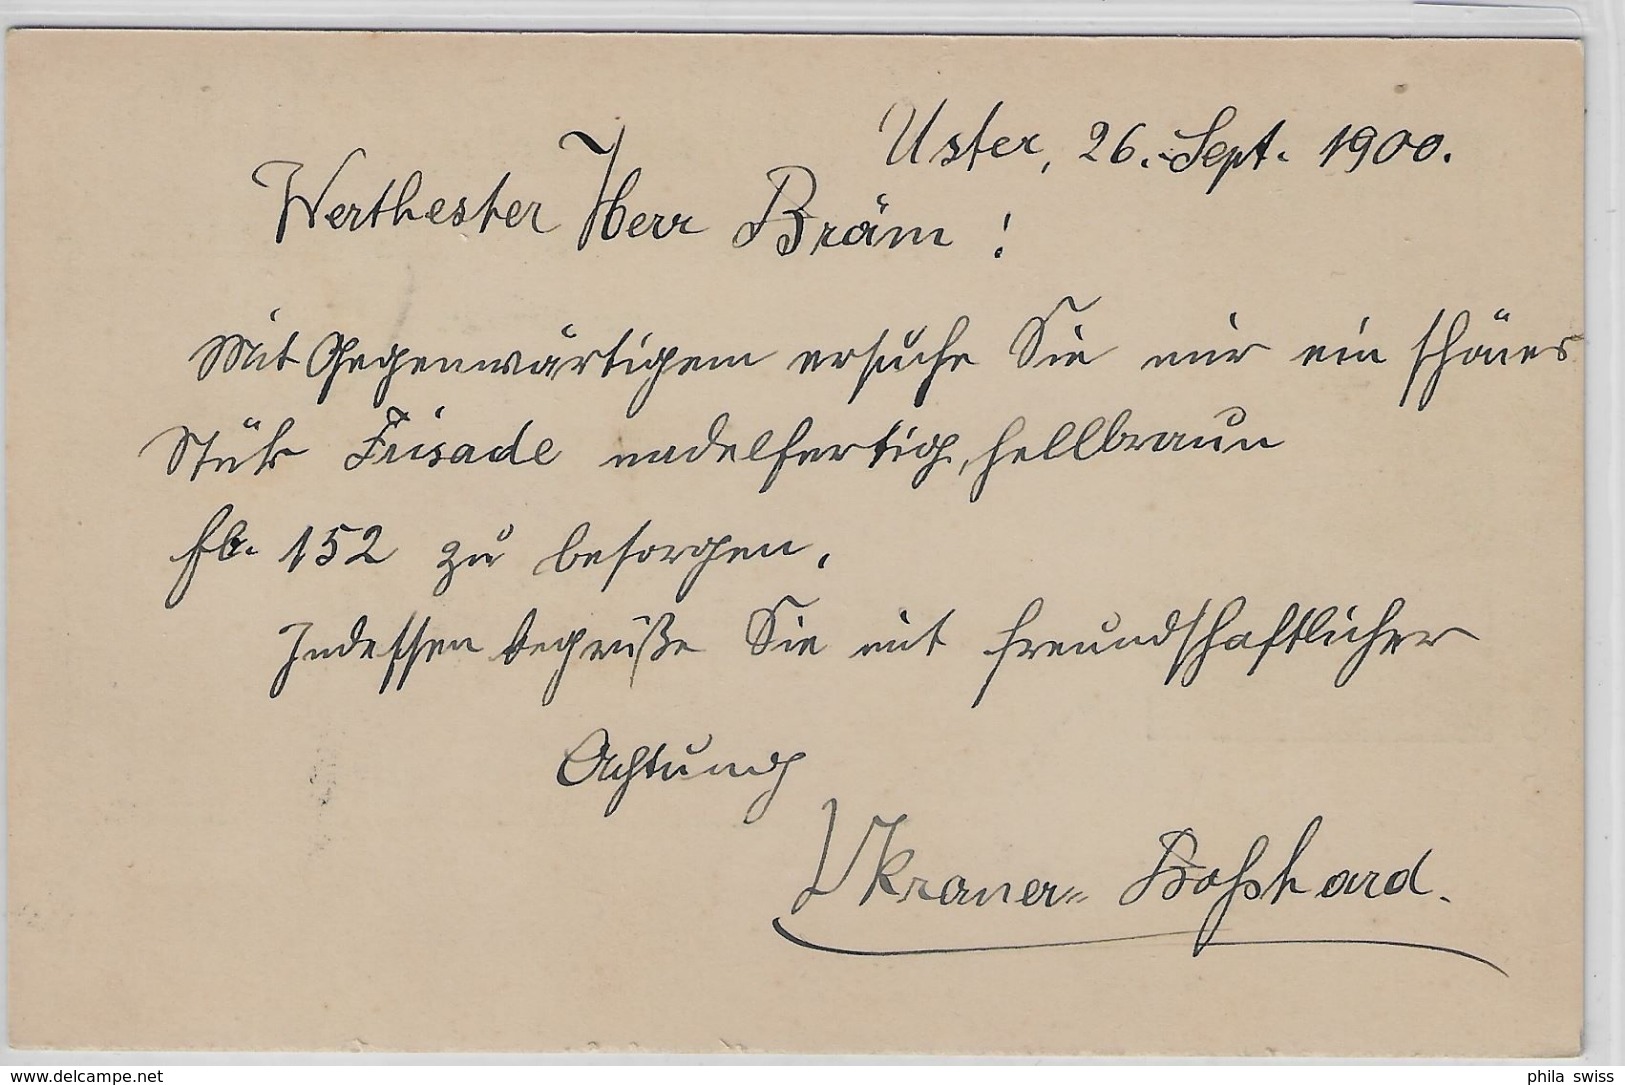 Uster, 26. Sept. 1900.
Werthester Herr Bräm !
Mit Gegenwärtigem ersuche Sie mir ein schönes
Stük Frisade nadelfertig, hellbraun
fb. 152 zu besorgen.
Indessen begrüße Sie mit freundschaftlicher
Achtung
Kraner= Boßhard.
www.delcampe.net
phila swiss